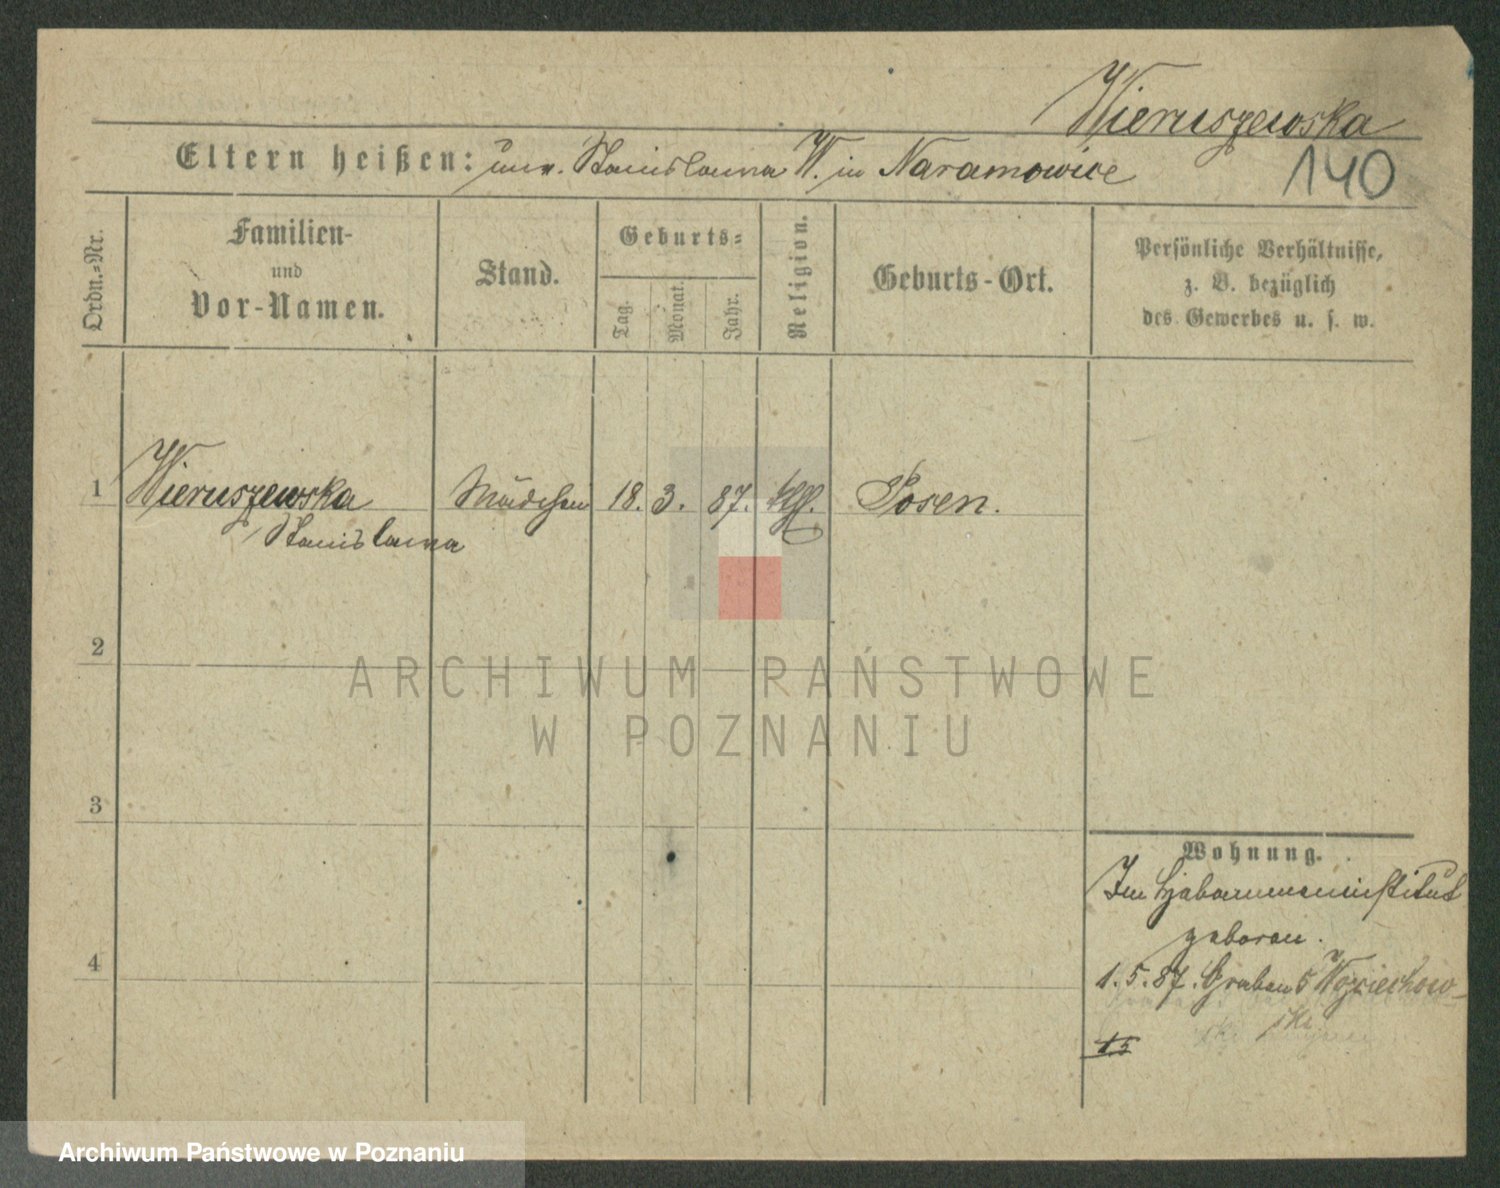 Wieruszewska
Eltern heißen: unv. Stanislawa W. in Naramowice
140
Ordn.-Nr.
Familien-
und
Vor-Namen.
Stand.
Geburts-
Tag.
Monat.
Jahr.
Religion.
Geburts-Ort.
Persönliche Verhältnisse,
z. B. bezüglich
des Gewerbes u. s. w.
1 Wieruszewska Mädchen 18. 3. 87. kath. Posen.
Stanislawa
2
3
4
Wohnung.
Im Hebammeninstitut
geboren.
1.5.87. Graben 5 Wojciechow-
ski
15
ARCHIWUM PAŃSTWOWE
W POZNANIU
Archiwum Państwowe w Poznaniu